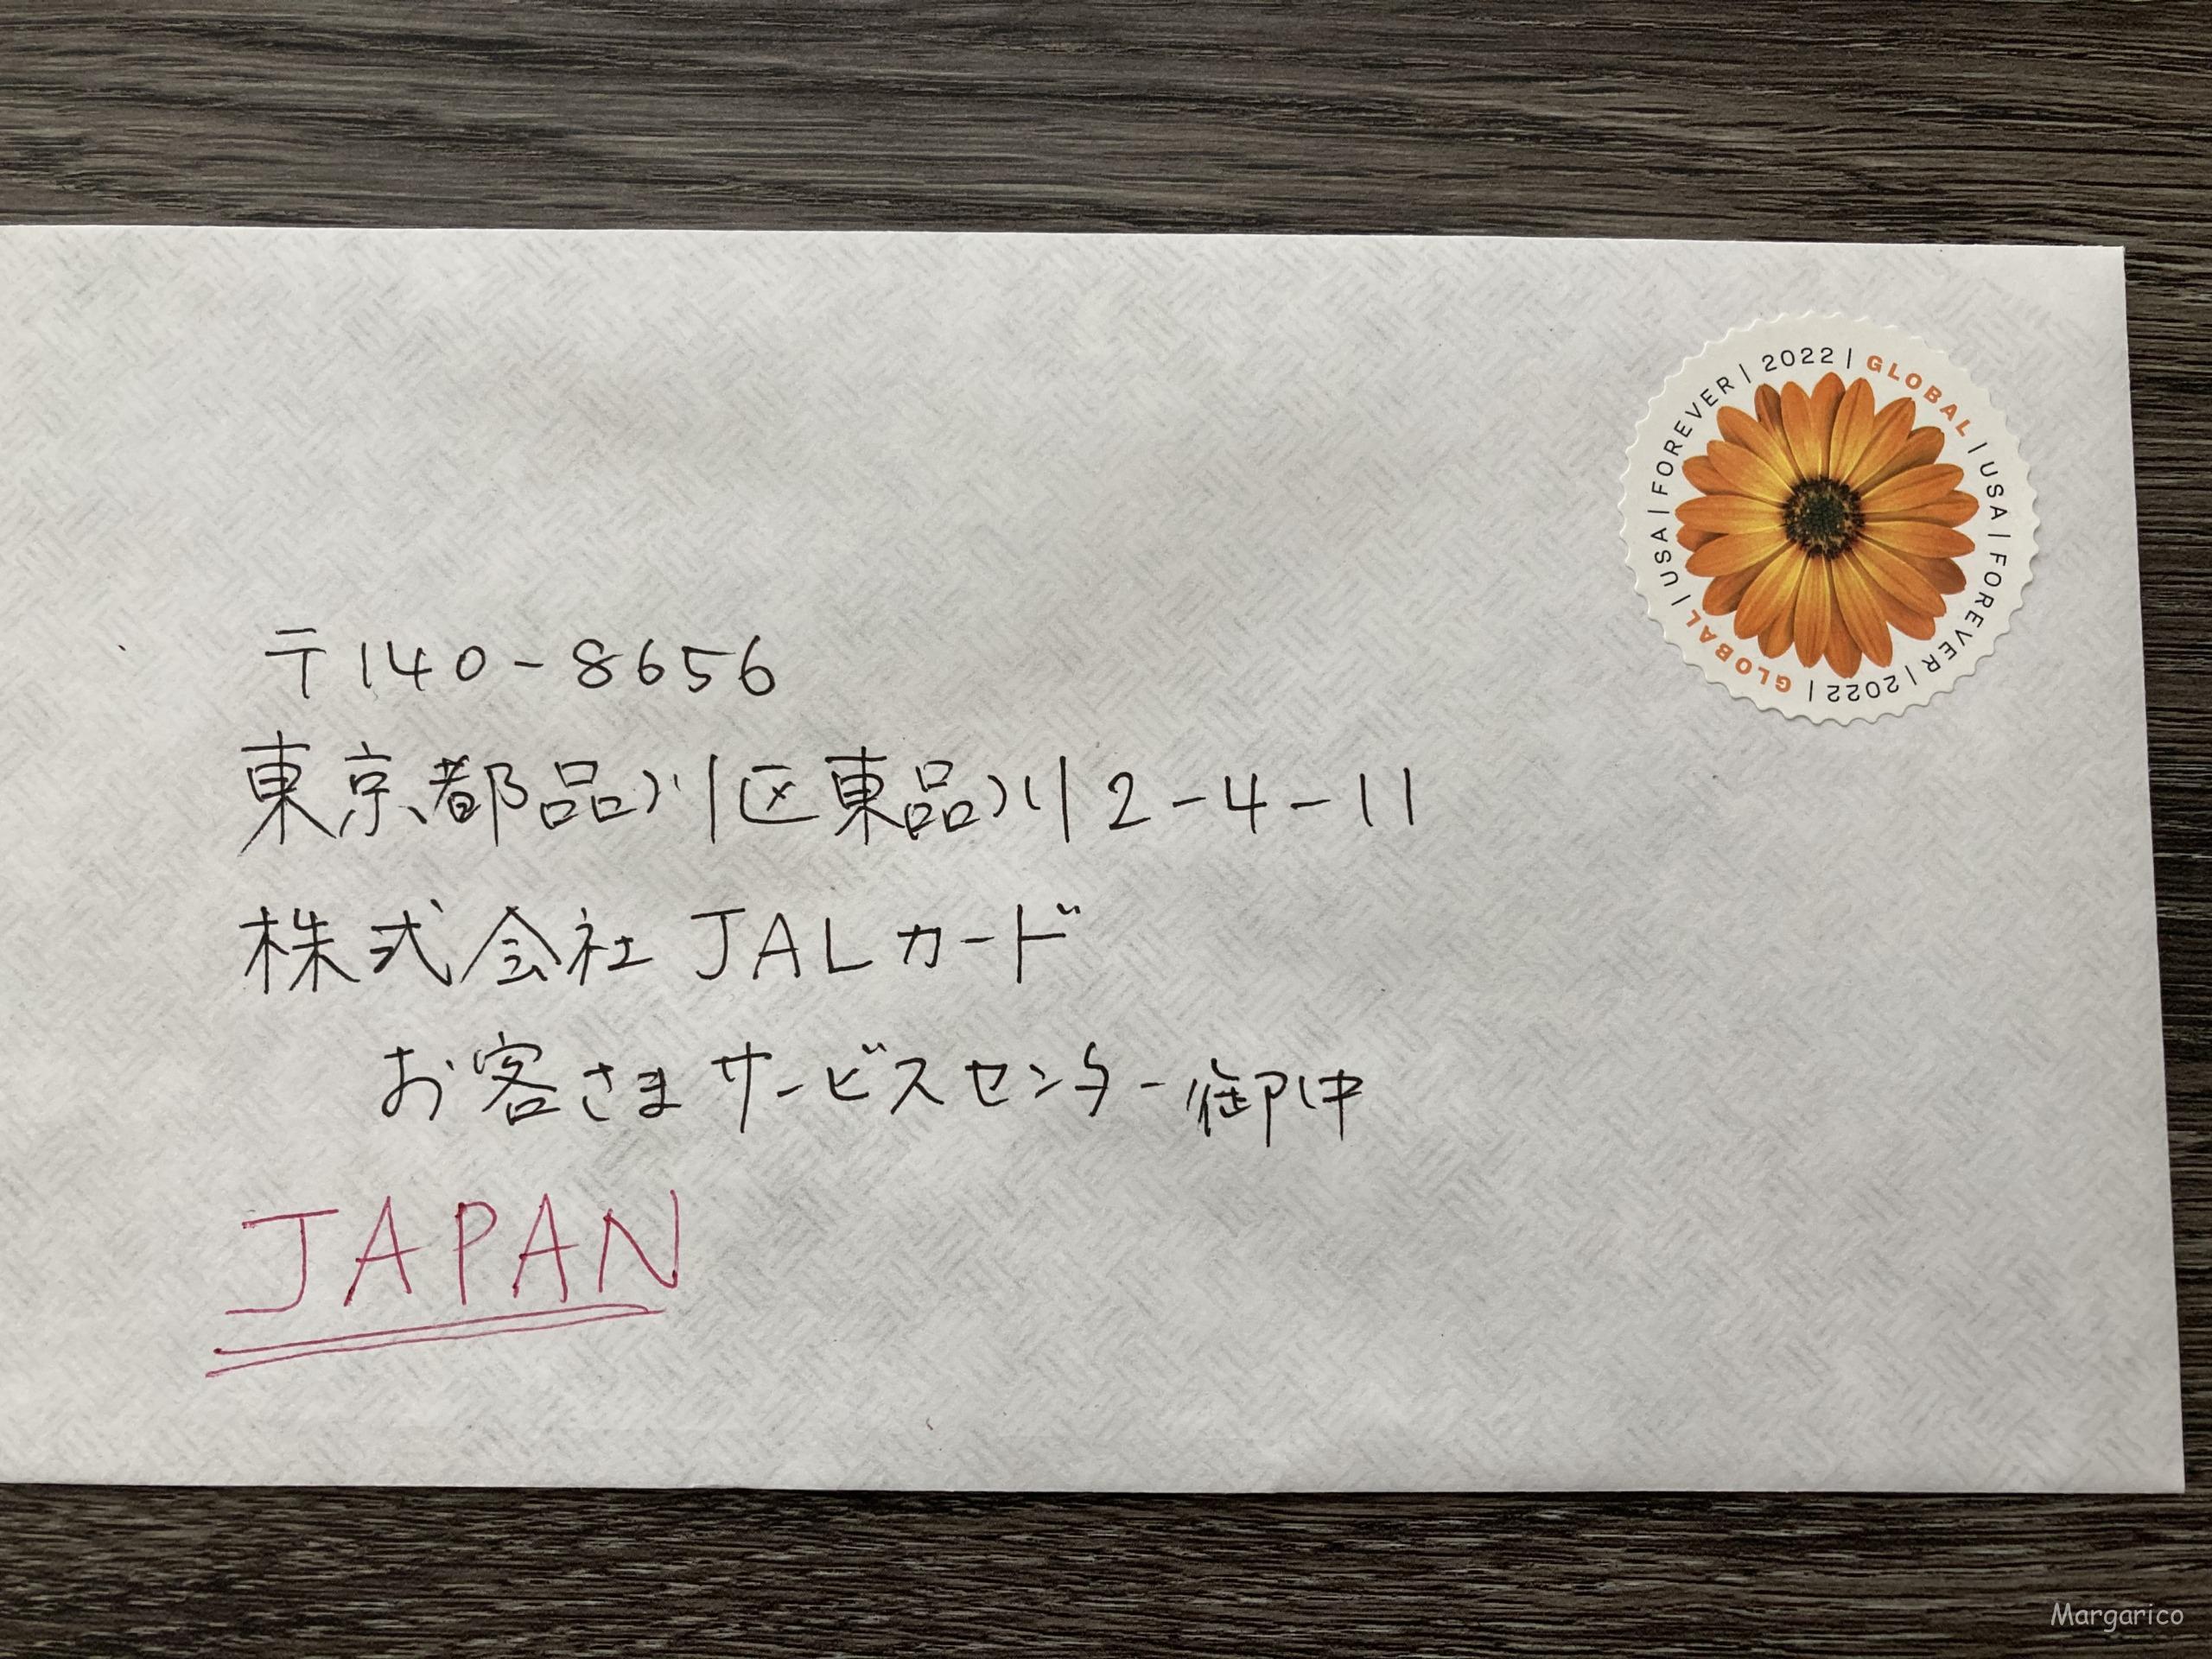 GLOBAL | USA | FOREVER | 2022 | GLOBAL | USA | FOREVER | 2022 |
〒140-8656
東京都品川区東品川2-4-11
株式会社JALカード
お客さまサービスセンター御中
JAPAN
Margarico